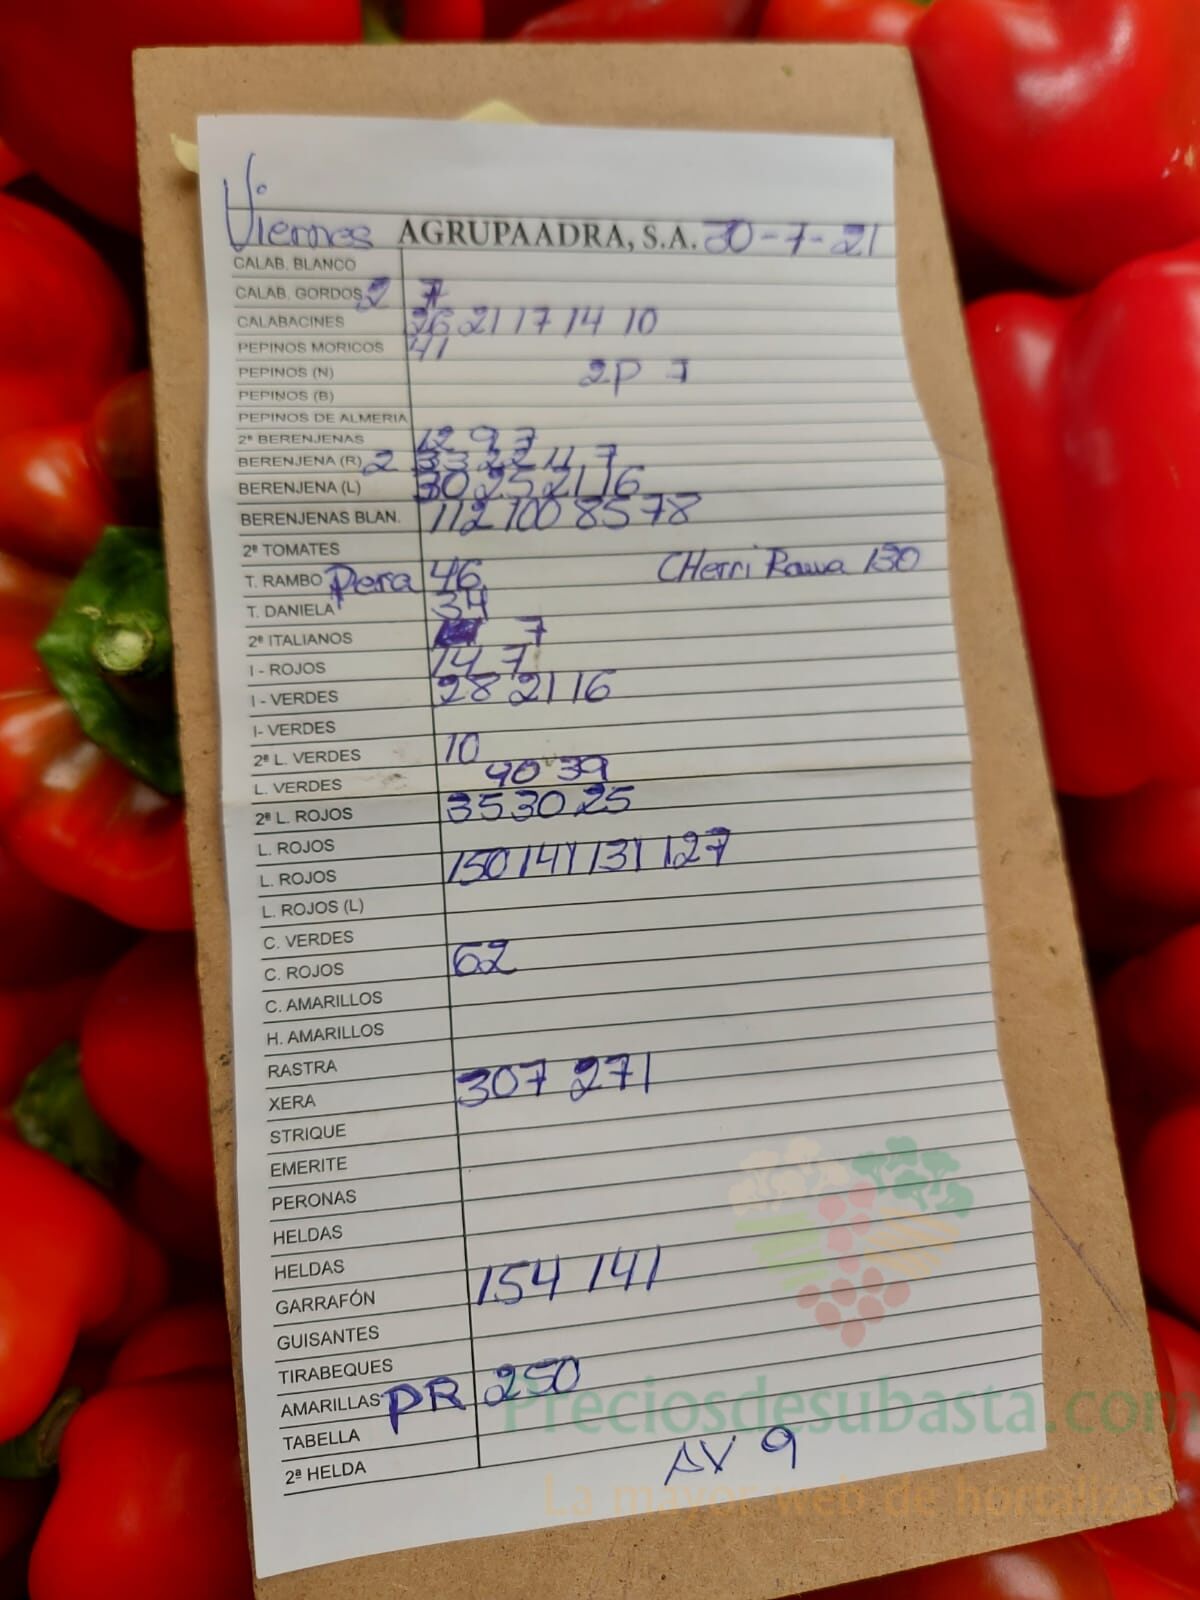 Viernes AGRUPAADRA, S.A. 30-7-21
CALAB. BLANCO
CALAB. GORDOS 2 7
CALABACINES 26 21 17 14 10
PEPINOS MORICOS 41
PEPINOS (N) 2P 7
PEPINOS (B)
PEPINOS DE ALMERIA
2ª BERENJENAS 12 9 7
BERENJENA (R) 2 33 22 11 7
BERENJENA (L) 30 25 21 16
BERENJENAS BLAN. 112 100 85 78
2ª TOMATES
T. RAMBO Pera 46 CHerri Rama 130
T. DANIELA 34
2ª ITALIANOS 7
I - ROJOS 14 7
I - VERDES 28 21 16
I- VERDES
2ª L. VERDES 10
L. VERDES 40 39
2ª L. ROJOS 35 30 25
L. ROJOS
L. ROJOS 150 141 131 127
L. ROJOS (L)
C. VERDES
C. ROJOS 62
C. AMARILLOS
H. AMARILLOS
RASTRA
XERA 307 271
STRIQUE
EMERITE
PERONAS
HELDAS
HELDAS
GARRAFÓN 154 141
GUISANTES
TIRABEQUES
AMARILLAS PR 250
Preciosdesubasta.com
TABELLA
2ª HELDA AV 9
La mayor web de hortalizas